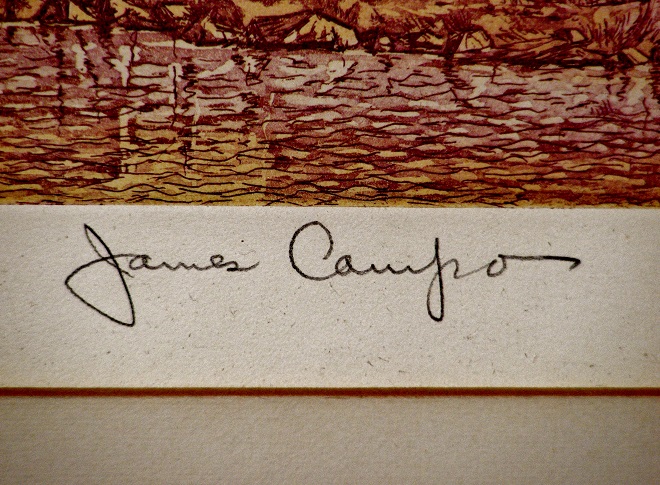 James Campo